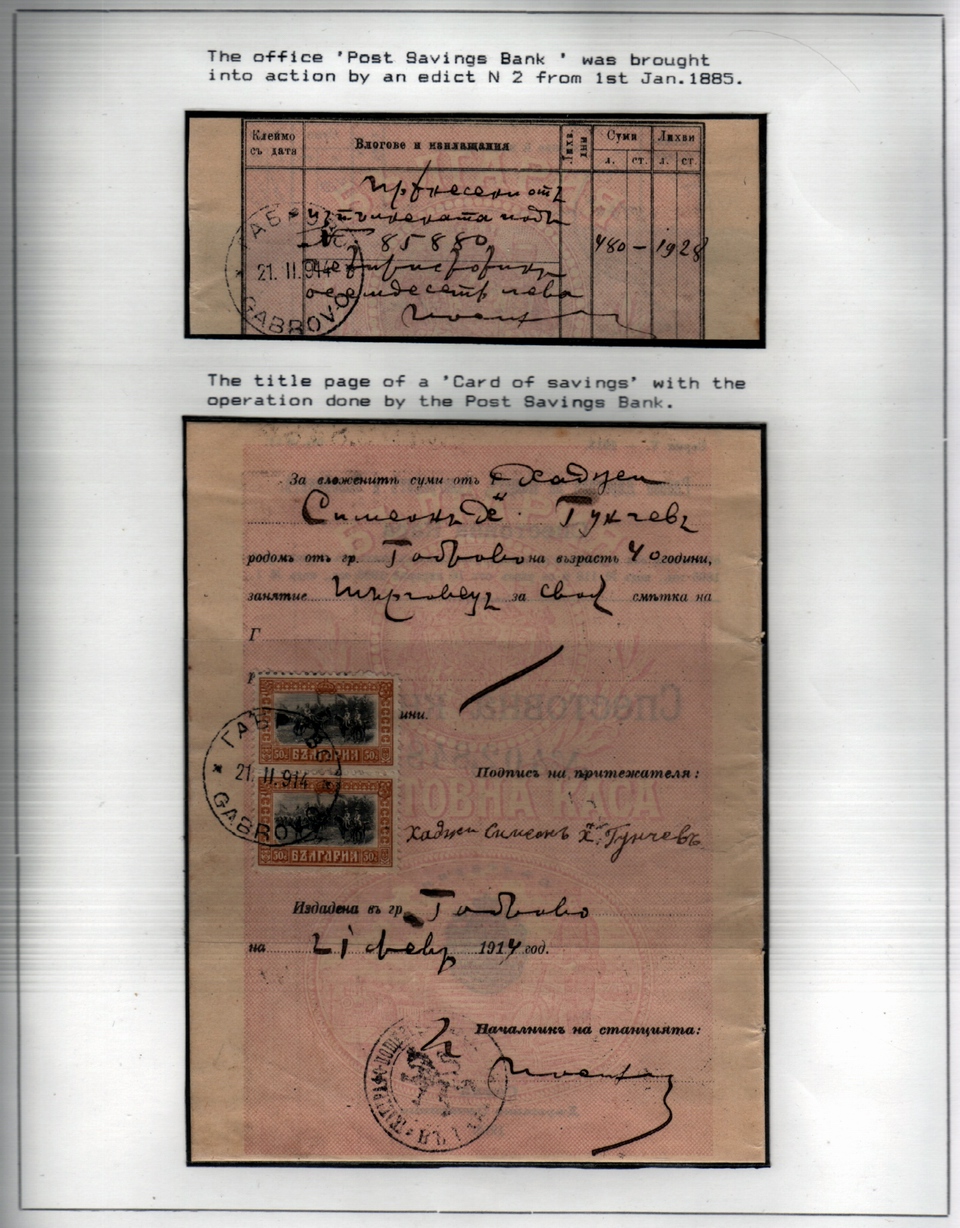 The office 'Post Savings Bank ' was brought
into action by an edict N 2 from 1st Jan.1885.
Клеймо
съ дата
Влогове и изплащания
Лихв.
дни
Сума
Лихви
л. ст. л. ст.
Пренесени отъ
85880
480 — 1928
осемдесеть лева
ГАБРОВО
21.II.914
GABROVO
The title page of a 'Card of savings' with the
operation done by the Post Savings Bank.
За вложенитѣ суми от Хаджи
Симеонъ Х. Гунчевъ
родомъ отъ гр. Габрово на възрасть 40 години,
занятие търговецъ за своя смѣтка на
Г
ини.
50 БЪЛГАРИЯ 50
50 БЪЛГАРИЯ 50
ГАБРОВО
21.II.914
GABROVO
Подписъ на притежателя:
Хаджи Симеонъ Х. Гунчевъ
Издадена въ гр. Габрово
на 21 февр 1914 год.
Началникъ на станцията: